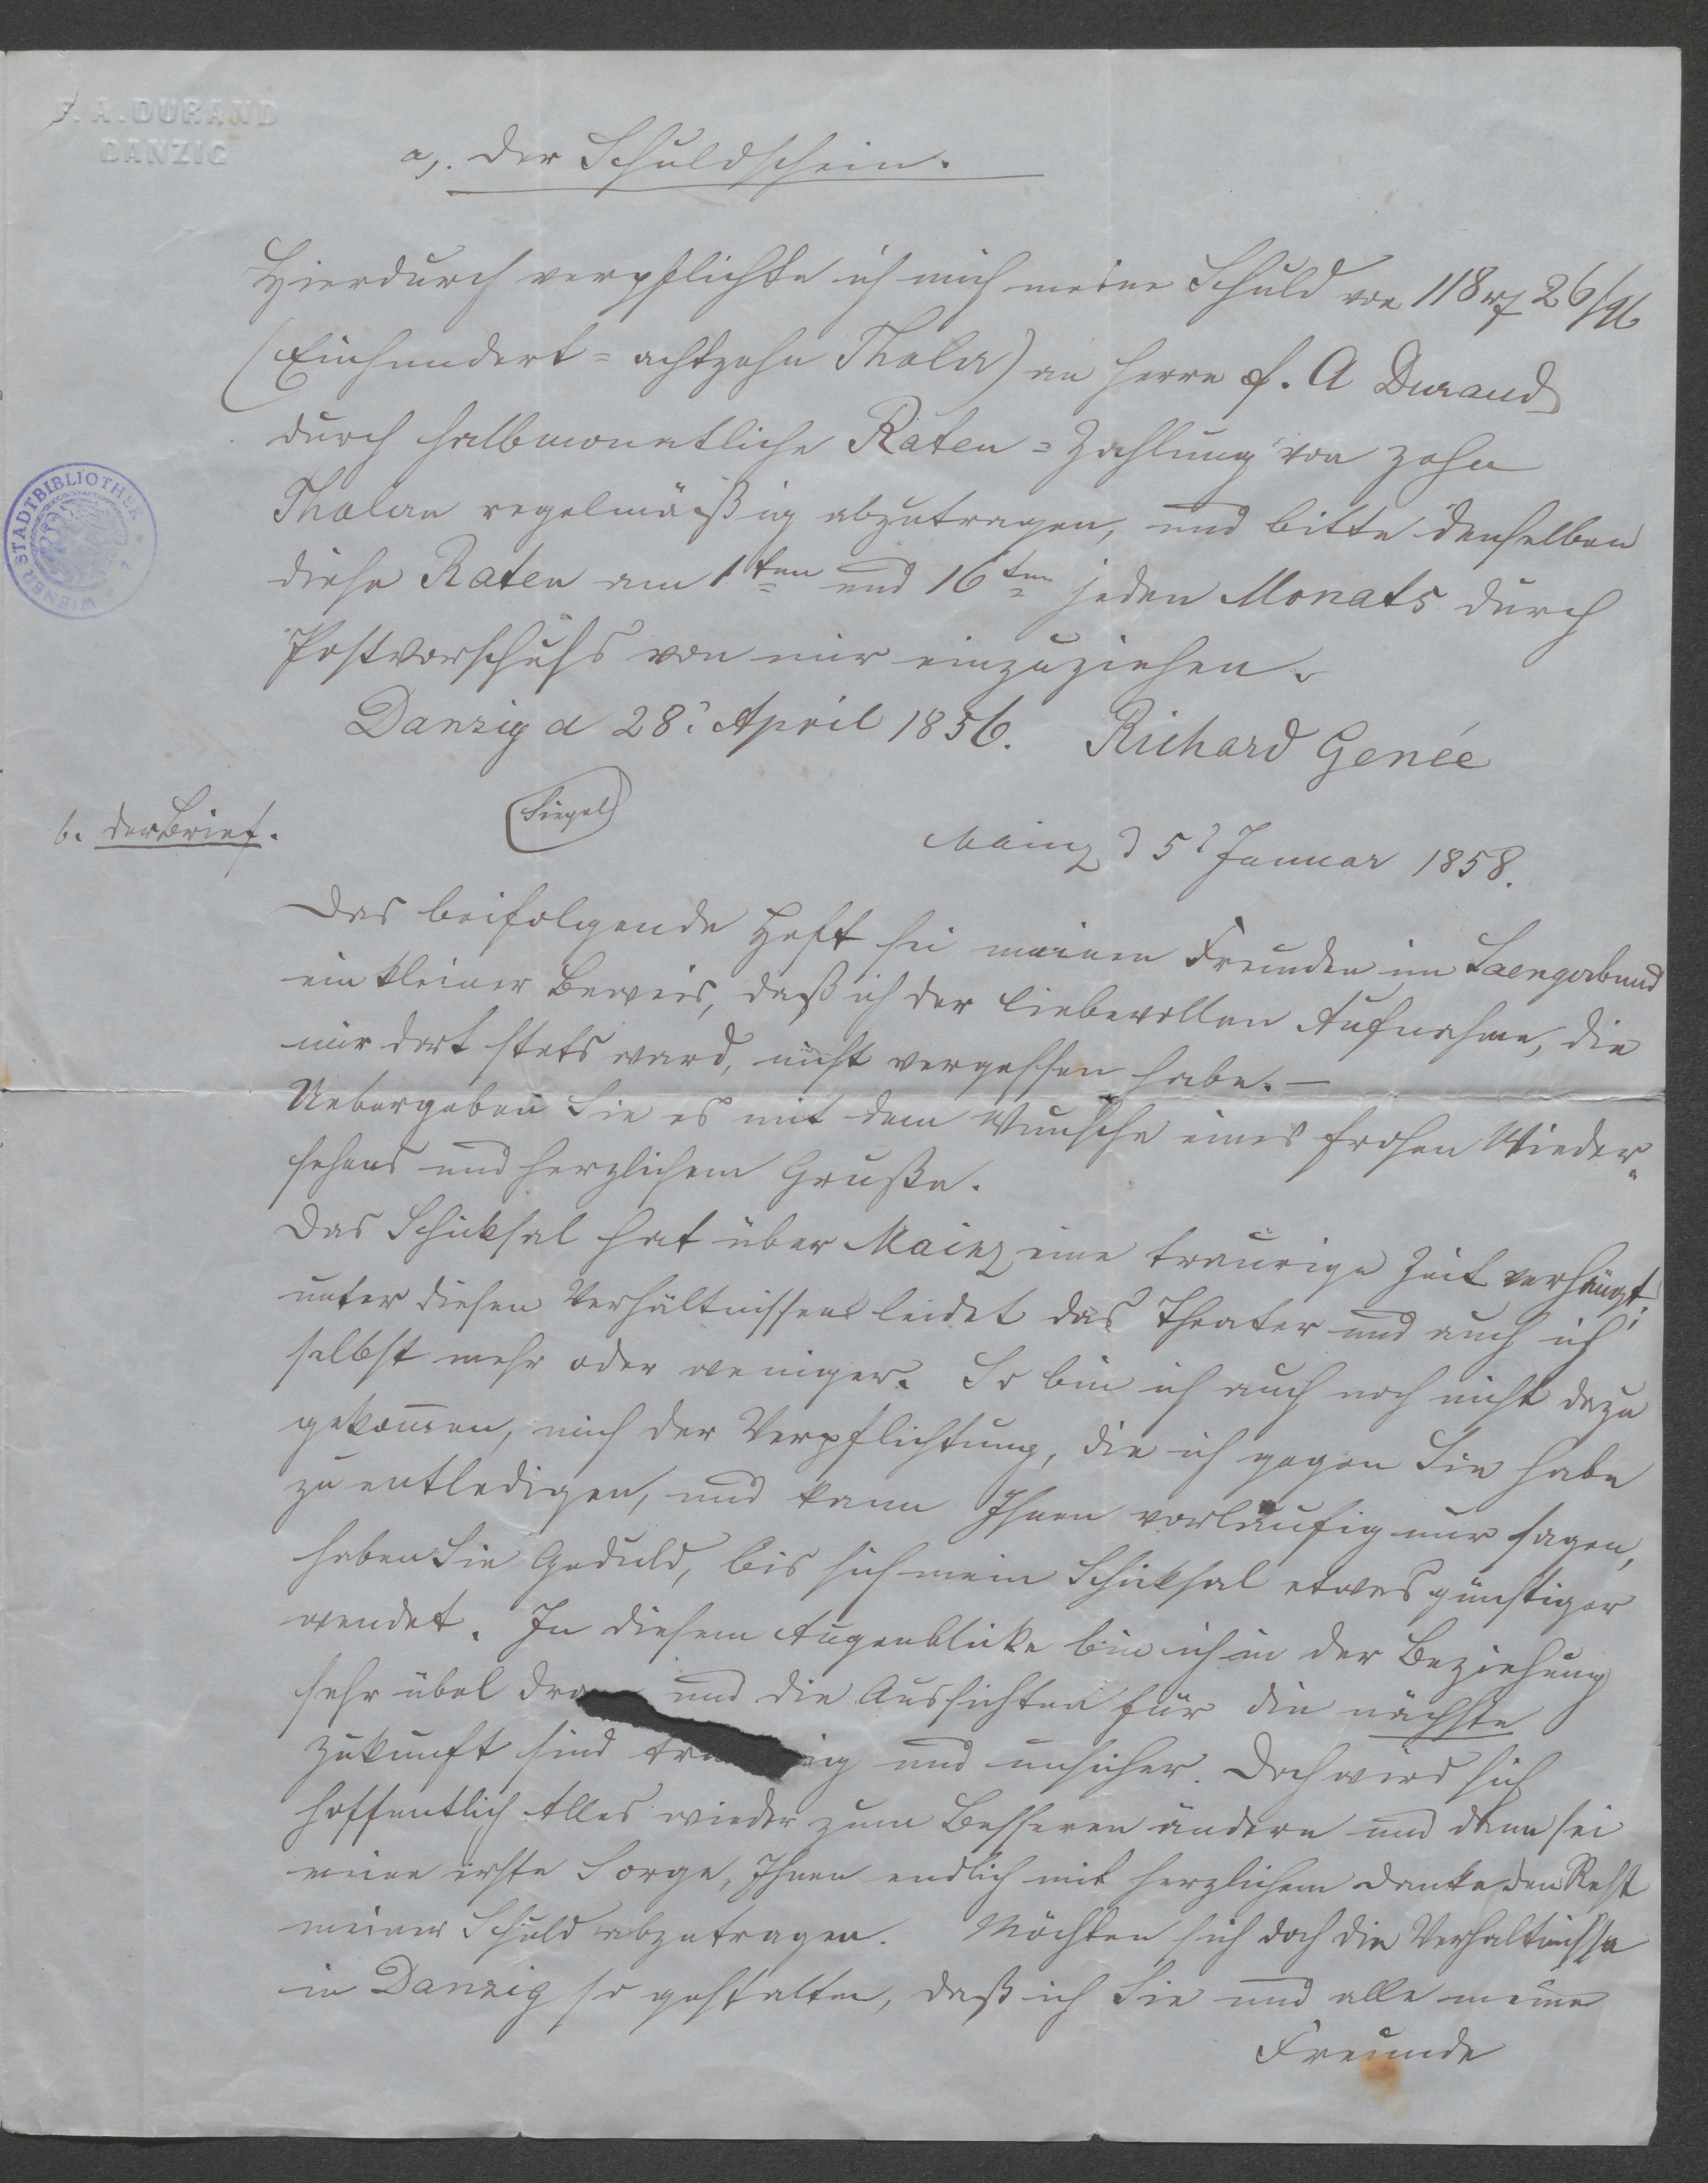 F. A. DURAND
DANZIG
a,. Der Schuldschein.
Hierdurch verpflichte ich mich meine Schuld von 118 rℓ 26/
(Einhundert = achtzehn Thaler) an Herrn F. A Durand
durch halbmonatliche Raten = Zahlung von zehn
Thalern regelmäßig abzutragen, und bitte denselben
diese Raten am 1ten und 16ten jeden Monats durch
Postvorschuss von mir einzuziehen.
Danzig d 28t April 1856. Richard Genée
(Siegel)
b. Der Brief.
Mainz d 5t Januar 1858.
Das beifolgende Heft sei meinen Freunden im Saengerbund
ein kleiner Beweis, daß ich der liebevollen Aufnahme, die
mir dort stets ward, nicht vergessen habe. –
Uebergeben Sie es mit dem Wunsche eines frohen Wieder-
sehens und herzlichem Gruße.
Das Schicksal hat über Mainz eine traurige Zeit verhängt;
unter diesen Verhältnissen leidet das Theater und auch ich
selbst mehr oder weniger. So bin ich auch noch nicht dazu
gekommen, mich der Verpflichtung, die ich gegen Sie habe
zu entledigen, und kann Ihnen vorläufig nur sagen,
haben Sie Geduld, bis sich mein Schicksal etwas günstiger
wendet. In diesem Augenblicke bin ich in der Beziehung
sehr übel dran und die Aussichten für die nächste
Zukunft sind traurig und unsicher. Doch wird sich
hoffentlich Alles wieder zum Besseren ändern und dann sei
meine erste Sorge, Ihnen endlich mit herzlichem Danke den Rest
meiner Schuld abzutragen. Möchten sich doch die Verhältnisse
in Danzig so gestalten, daß ich Sie und alle meine
Freunde
WIENER STADTBIBLIOTHEK